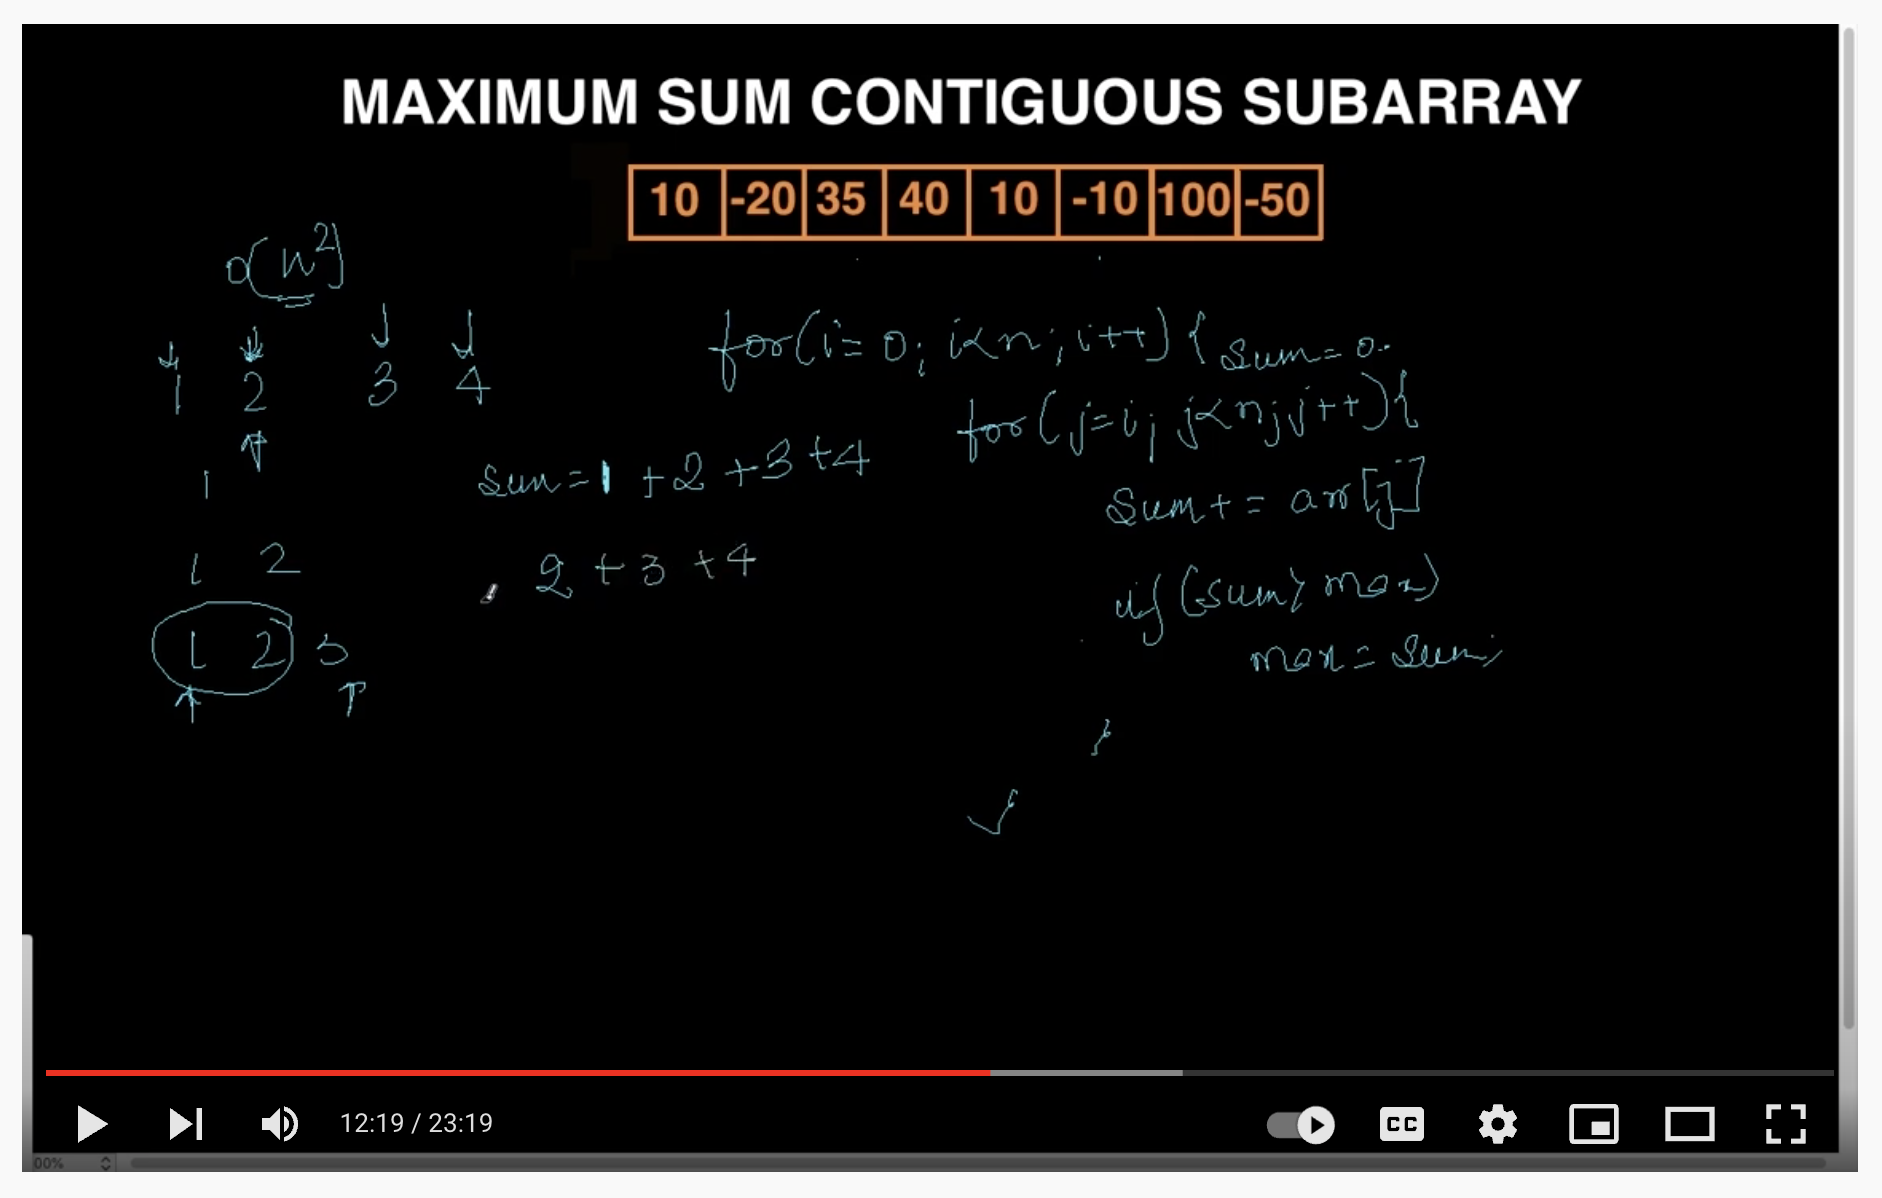 MAXIMUM SUM CONTIGUOUS SUBARRAY
10 -20 35 40 10 -10 100 -50
O(n²)
1 2 3 4
1
1 2
1 2 3
sum = 1 + 2 + 3 + 4
2 + 3 + 4
for(i=0; i<n; i++){ sum=0
for(j=i; j<n; j++){
sum+ = arr[j]
if (sum> max)
max = sum;
12:19 / 23:19
CC
00%